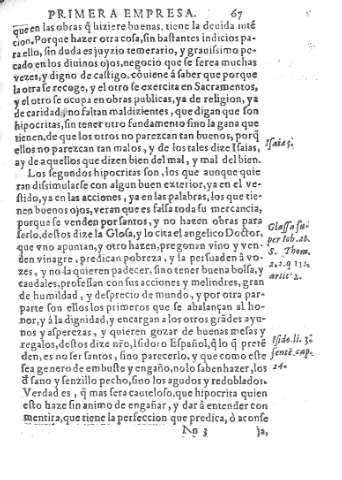 PRIMERA EMPRESA. 67
que en las obras q̃ hiziere buenas, tiene la deuida inté
cion. Porque hazer otra cosa, sin bastantes indicios pa
ra ello, sin duda es juyzio temerario, y grauissimo pe-
cado en los diuinos ojos, negocio que se serea muchas
vezes, y digno de castigo. cõuiene á saber que porque
la otra se recoge, y el otro se exercita en Sacramentos,
y el otro se ocupa en obras publicas, ya de religion, ya
de caridad, no faltan maldizientes, que digan que son
hipocritas, sin tener otro fundamento sino la gana que
tienen, de que los otros no parezcan tan buenos, porq̃
ellos no parezcan tan malos, y de los tales dize Isaias,
ay de aquellos que dizen bien del mal, y mal del bien.
Isaie 5.
Los segundos hipocritas son, los que aunque quie
ran dissimularse con algun buen exterior, ya en el ve-
stido, ya en las acciones, ya en las palabras, los que tie-
nen buenos ojos, veran que es falsa toda su mercancia,
porque se venden por santos, y no hazen obras para
serlo, destos dize la Glosa, y lo cita el angelico Doctor,
que vno apuntan, y otro hazen, pregonan vino y ven-
den vinagre, predican pobreza, y la persuaden à vo-
zes, y no la quieren padecer, sino tener buena bolsa, y
caudales, professan con sus acciones y melindres, gran
de humildad, y desprecio de mundo, y por otra par-
parte son ellos los primeros que se abalançan al ho-
nor, y á la dignidad, y encargan a los otros grádes ayu-
nos y asperezas, y quieren gozar de buenas mesas y
regalos, destos dize nr̃o, Isidoro Español, q̃ lo q̃ preté
den, es no ser santos, sino parecerlo, y que como este
sea genero de embuste y engaño, no lo saben hazer, los
d̃ sano y senzillo pecho, sino los agudos y redoblados.
Verdad es, q̃ mas sera cauteloso, que hipocrita quien
esto haze sin animo de engañar, y dar á entender con
mentira, que tiene la perfeccion que predica, ò aconse
Glossa su-
per Iob. 26.
S. Thom.
2.2. q 111.
artic 2.
Isido. li. 3.
senté. cap.
24.
Nn 3 ja,